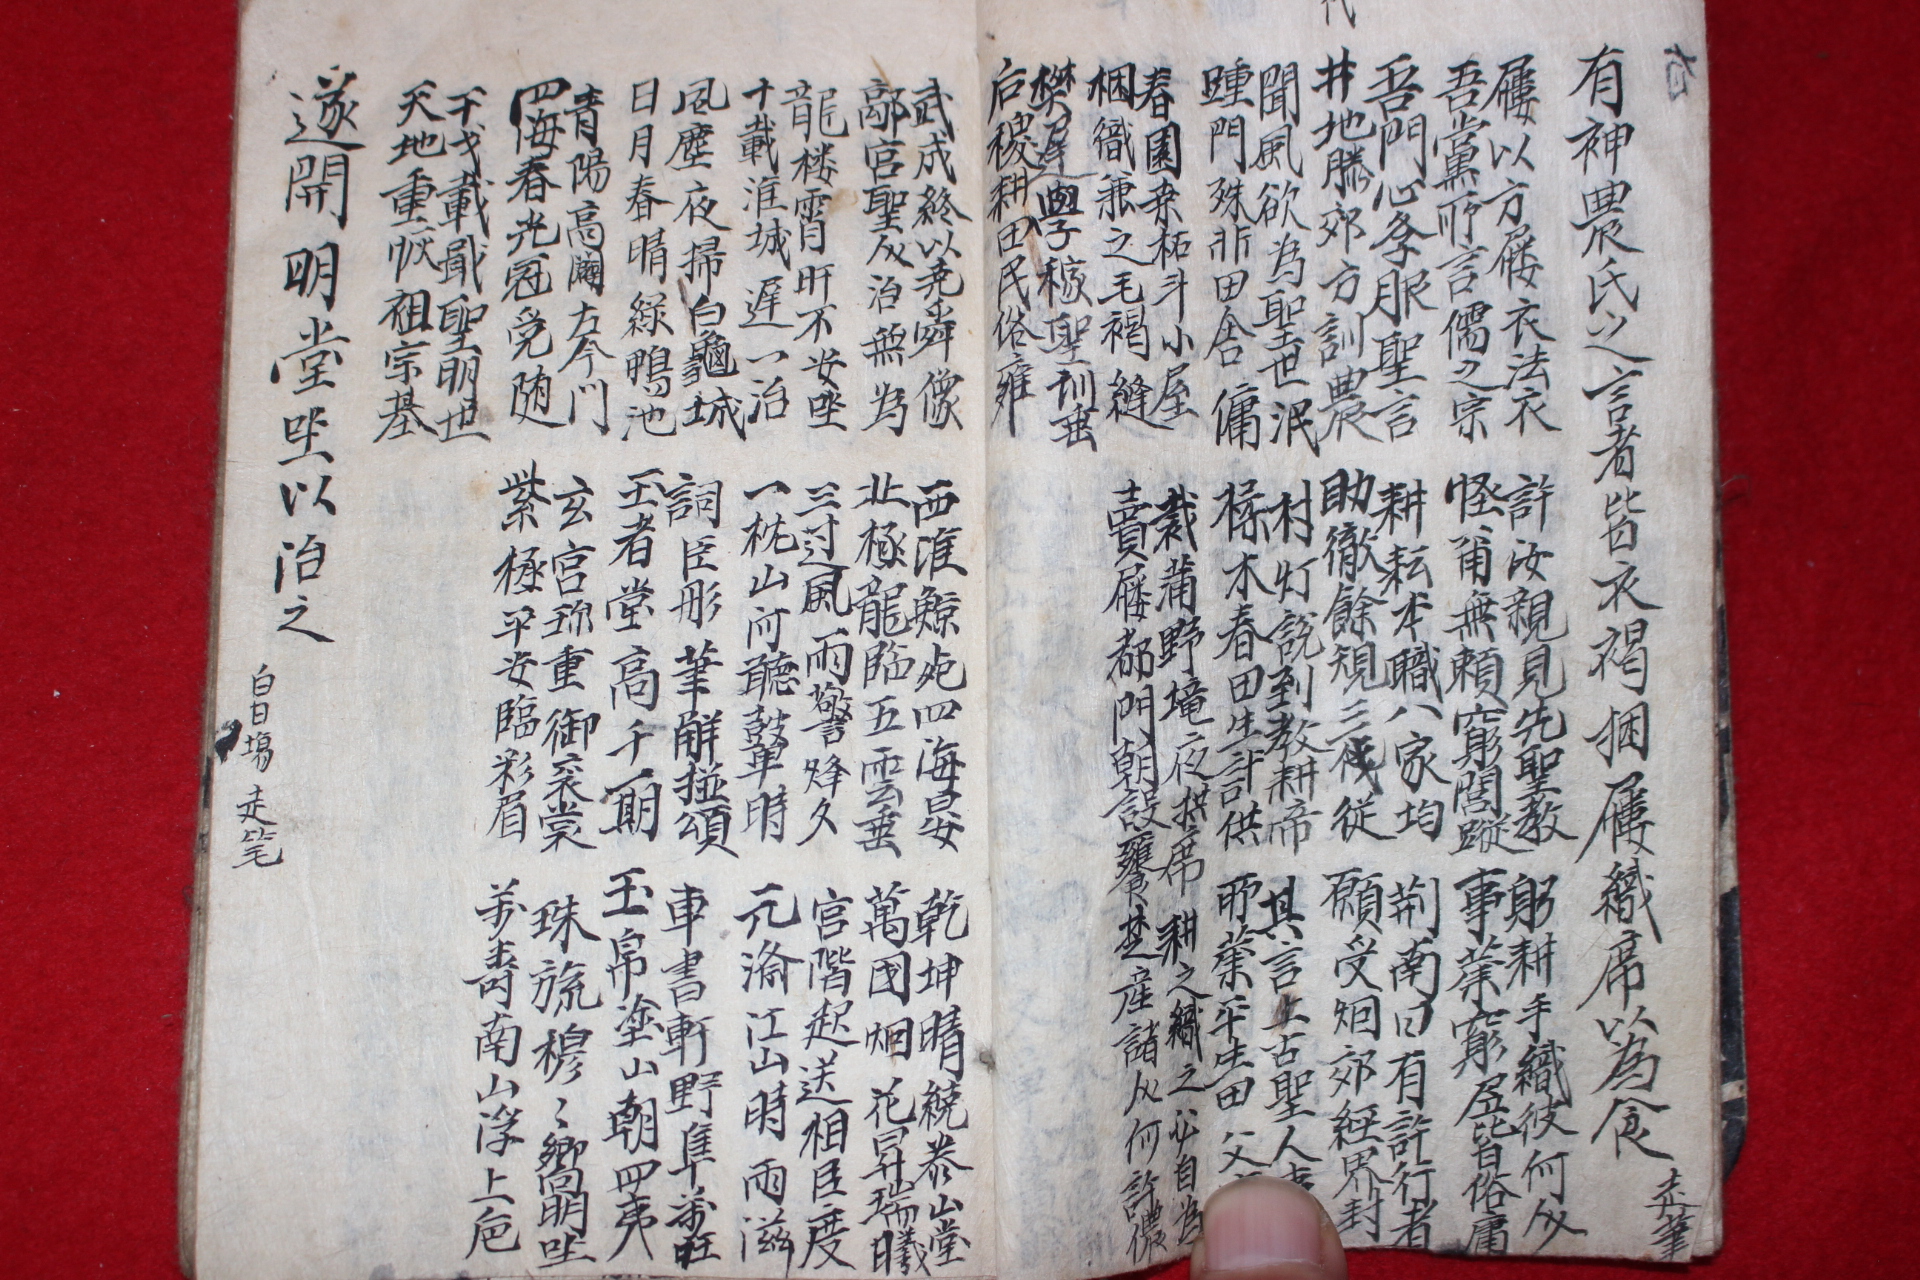 有神農氏之言者皆衣褐捆屨織席以為食 走筆
屨以方屨衣法衣 許汝親見先聖教 躬耕手織彼何人
吾黨所言儒之宗 怪爾無賴窮閭蹤 事業窮居皆俗庸
吾門心孝服聖言 耕耘本職八家均 荊南曰有許行者
井地滕郊方訓農 助徹餘規三代從 願受烟郊經界封
聞風欲為聖世氓 村灯說到教耕帝 其言上古聖人
踵門殊非田舍傭 楺木春田生計供 所業平生田父
春園桑柘斗小屋 栽蒲野境夜拱席 耕之織之必自為
梱織兼之毛褐縫 賣屨都門朝設饔 楚産諸人何許儂
樊遲學稼聖訓垂
后稷耕田民俗雍
武成終以堯舜像 西淮鯨死四海晏 乾坤晴繞泰山堂
鄗宮聖人治無為 北極龍臨五雲垂 萬國烟花昇瑞曦
龍楼宵旰不安坐 三过風雨警烽久 宮階起送相臣度
十載淮城遲一治 一枕山河聽鼓時 元濟江山時雨滋
風塵夜掃白龜城 詞臣彤筆解頌 車書軒野隼旺
日月春晴綠鴨池 王者堂高千一期 玉帛塗山朝四夷
青陽高闢左今門 玄宮珎重御袞裳 珠旒穆々嚮明坐
四海春光冠冕随 紫極平安臨彩眉 萬壽南山浮上卮
干戈載戢聖明世
天地重恢祖宗基
遂開明堂坐以治之 白日場 走筆